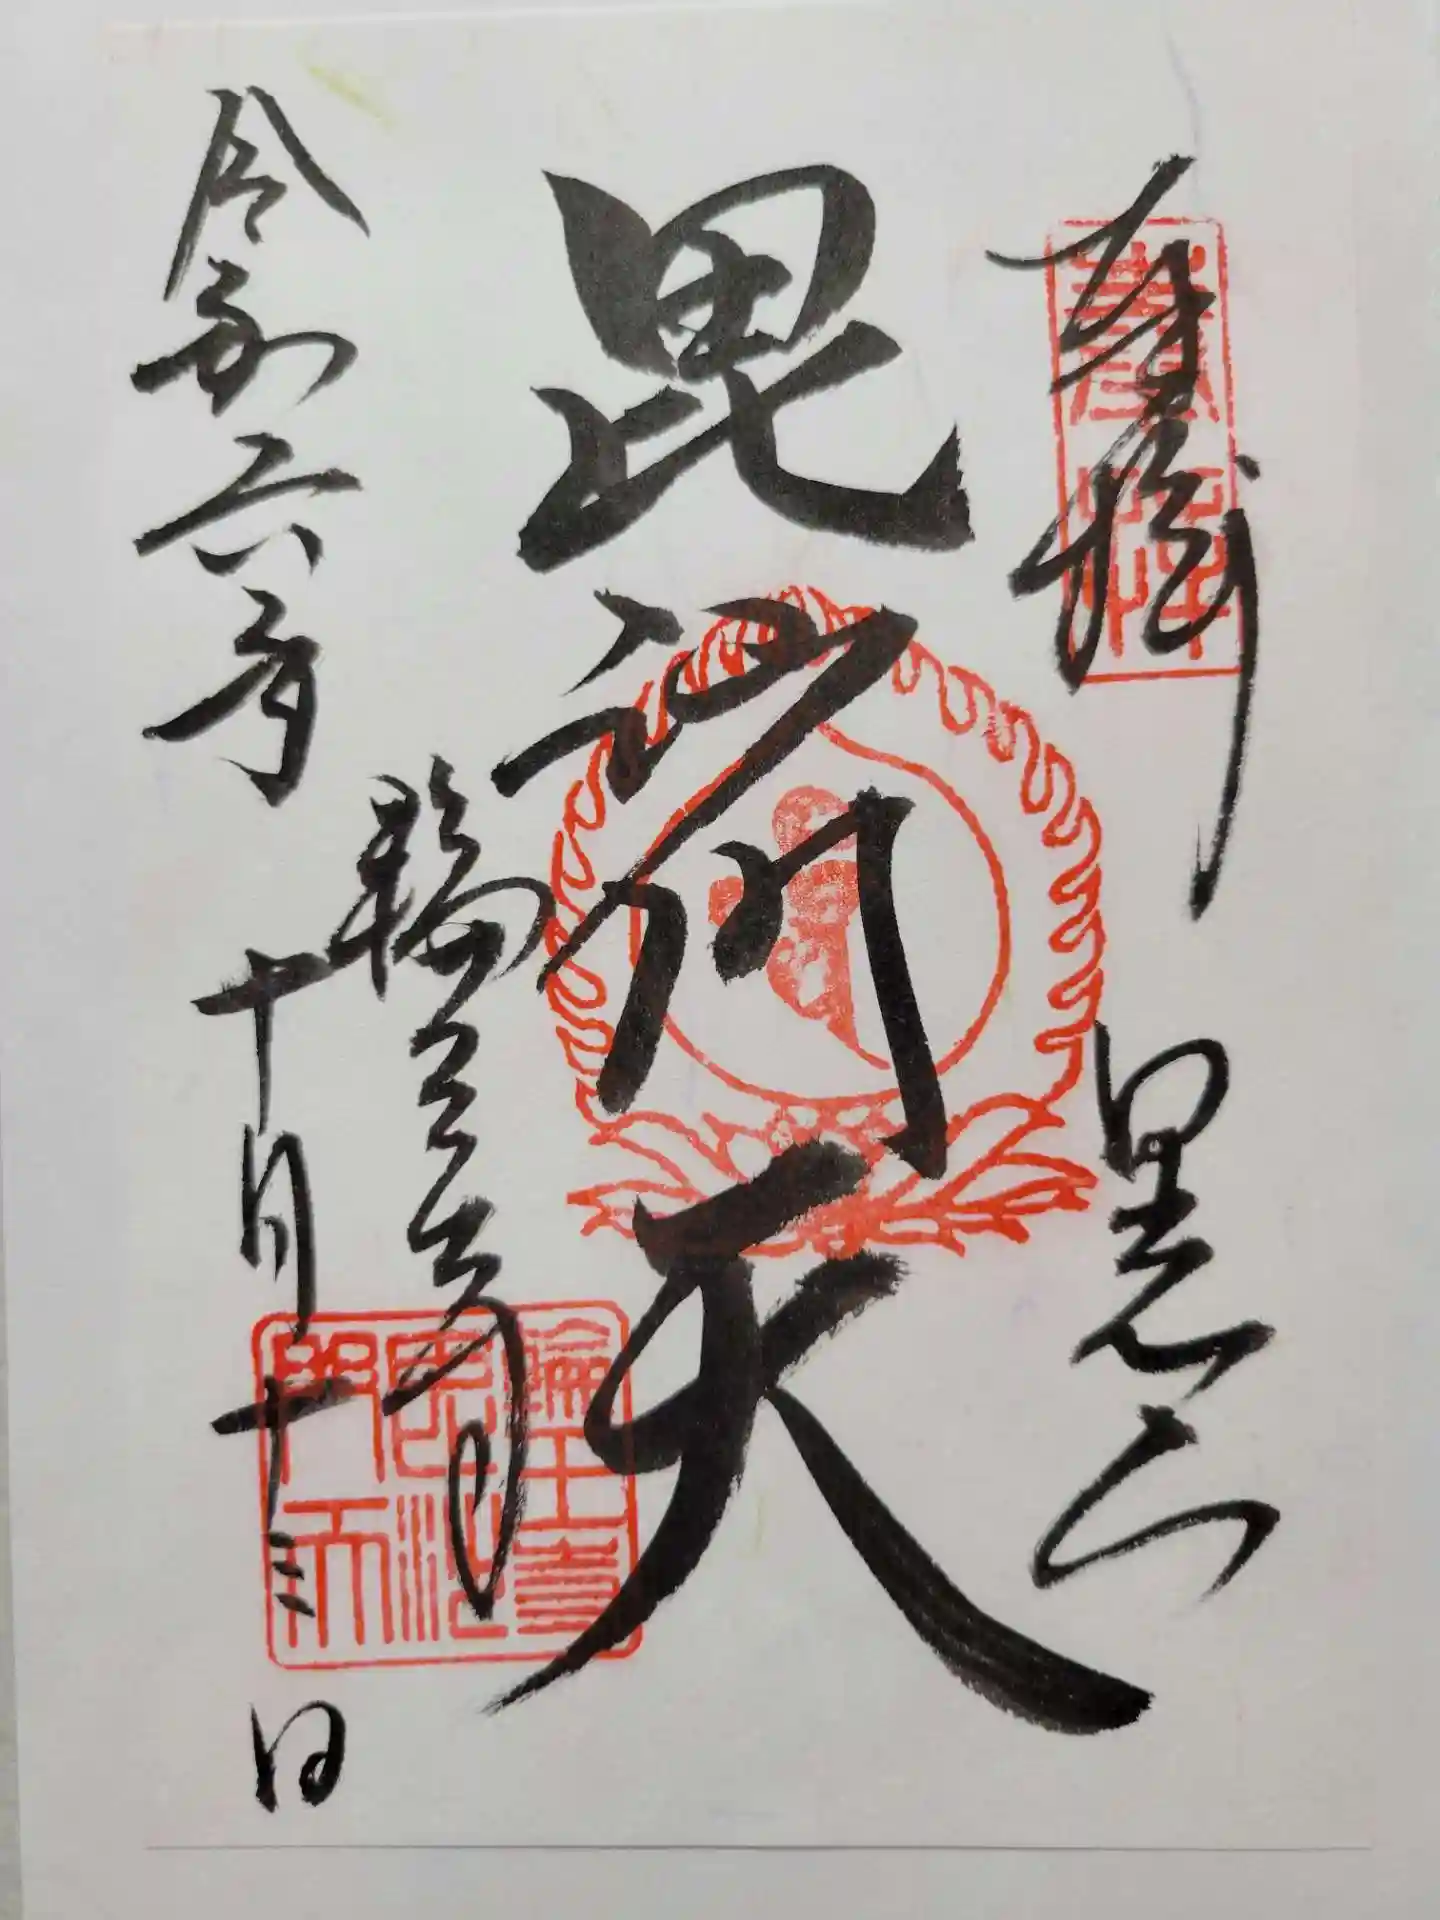 奉拝 日光山
毘沙門天
輪王寺
令和六年十月十三日
輪王寺
毘沙
門天